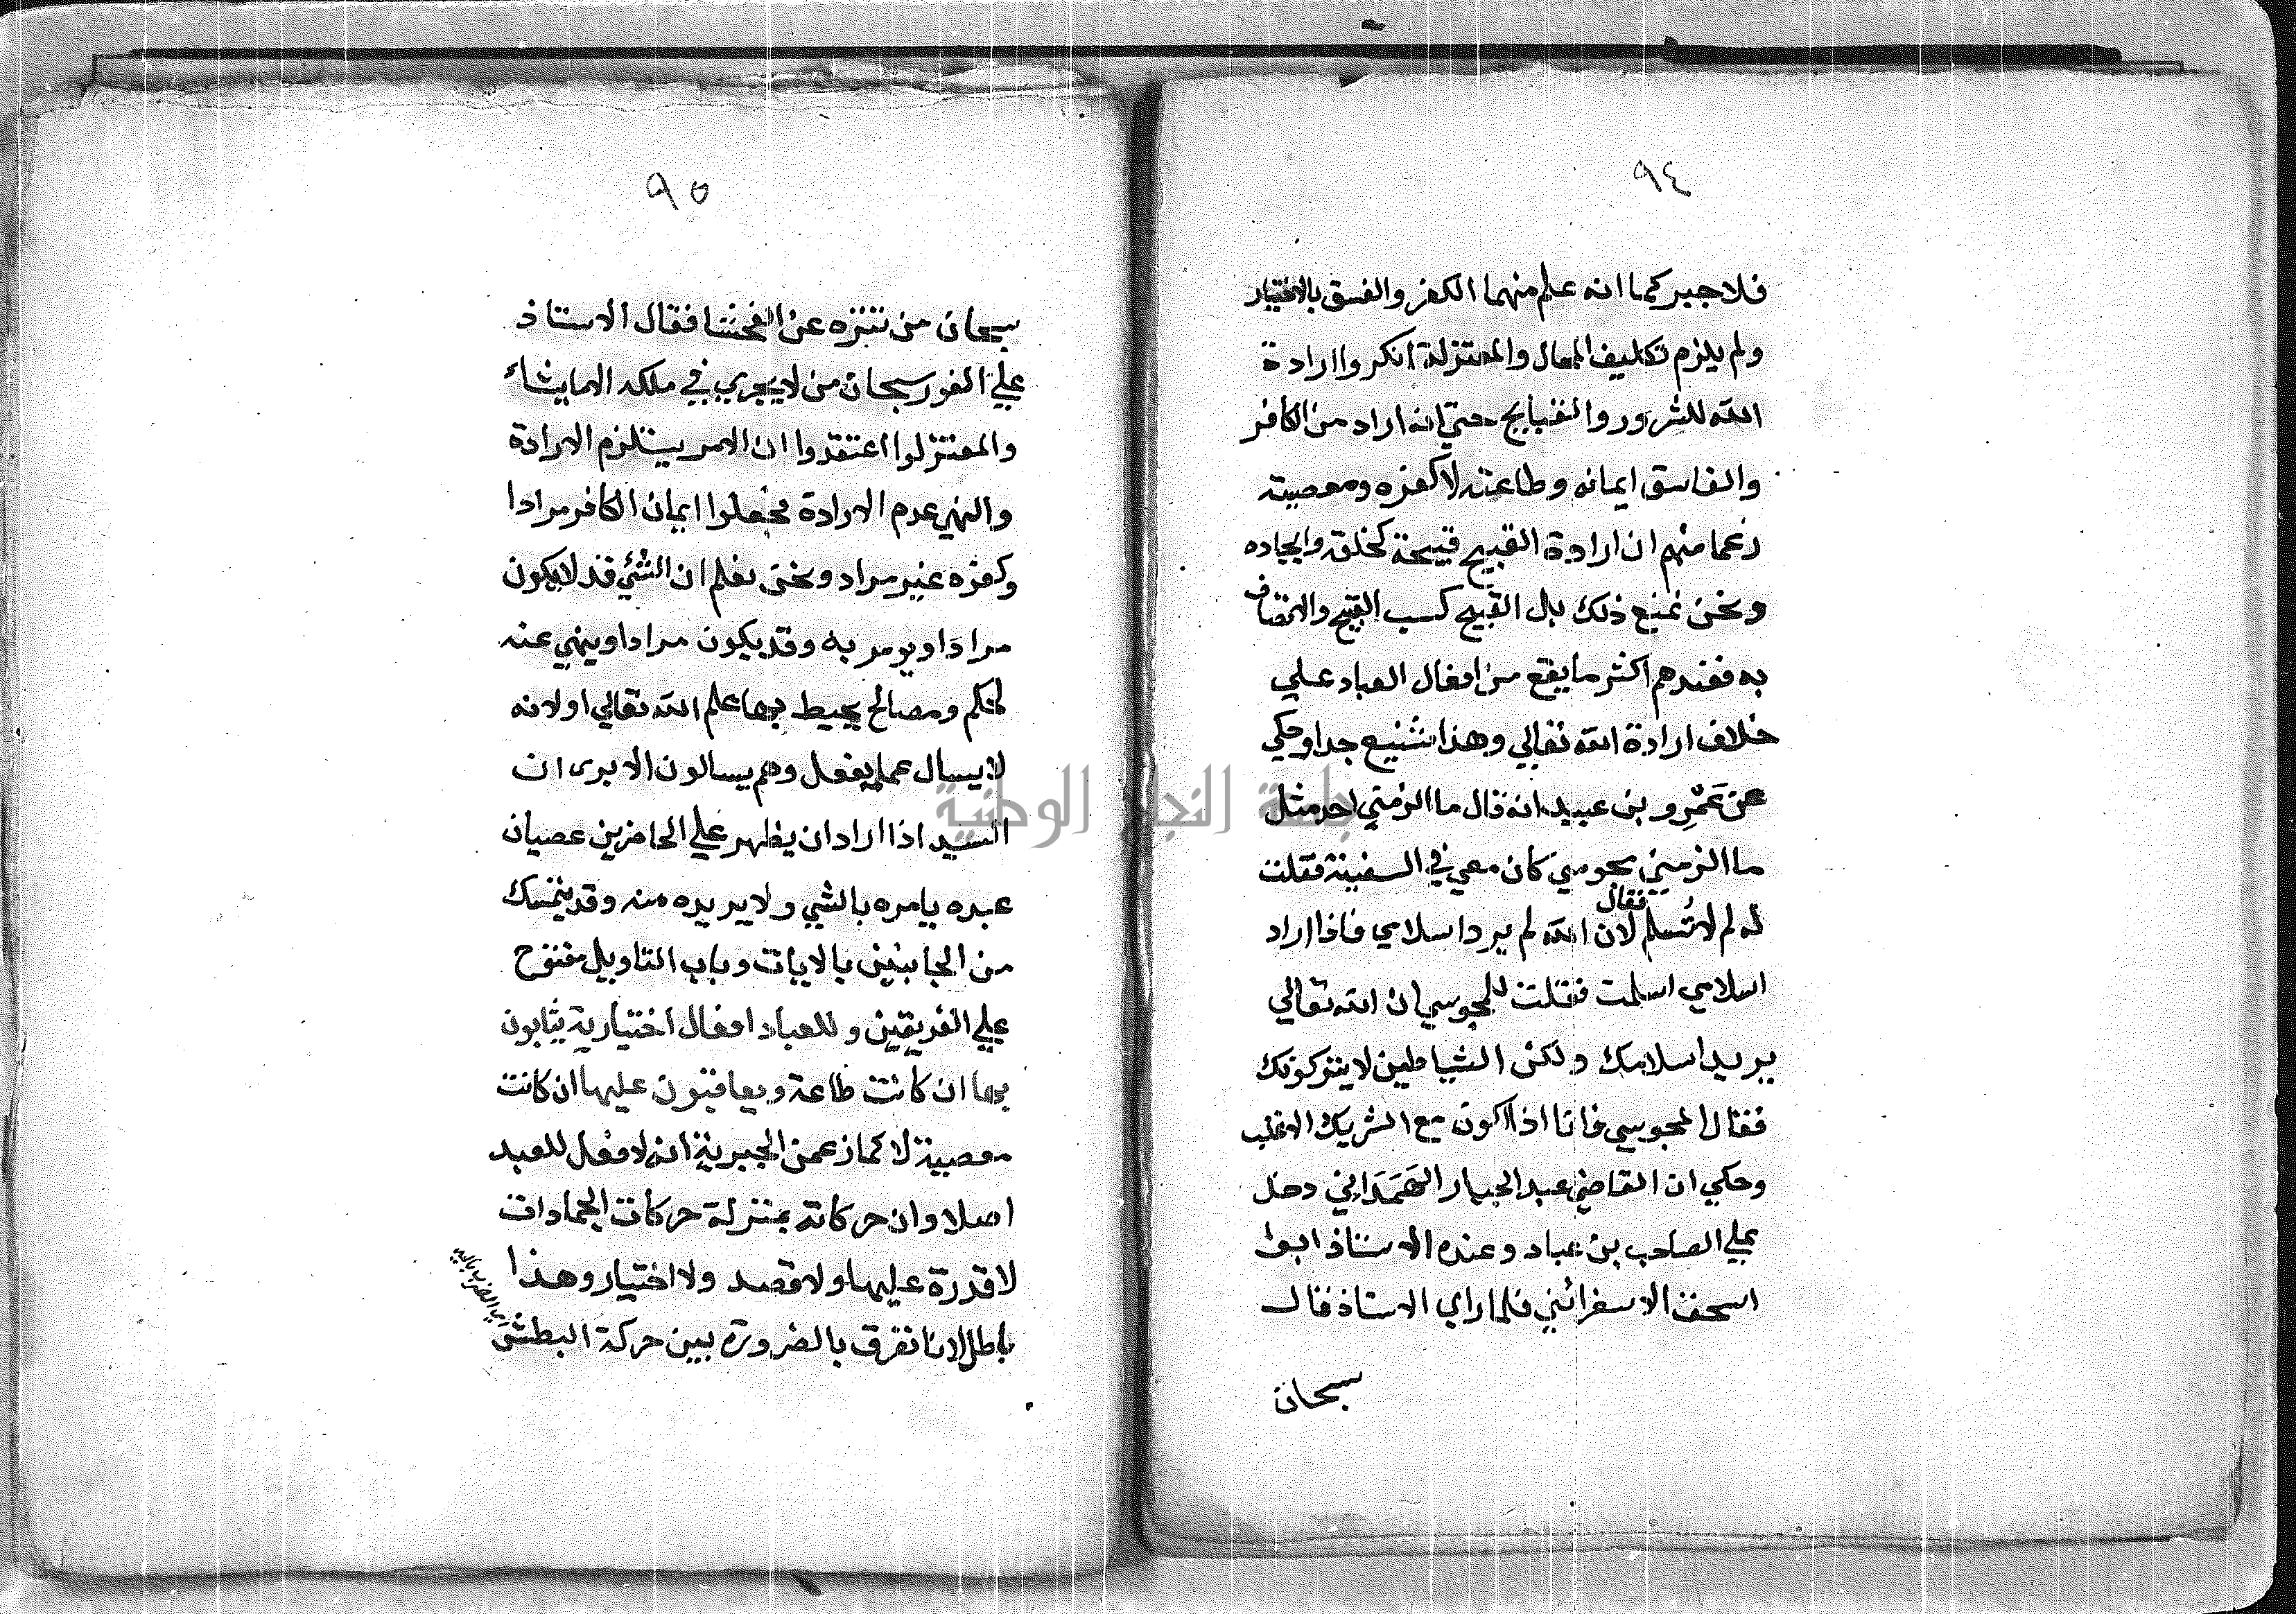 ٩٤
فلا جبر كما انه علم منهما الكفر والفسق بالاختيار
ولم يلزم تكليف المحال والمعتزلة انكروا ارادة
الله للشرور والقبايح حتي انه اراد من الكافر
والفاسق ايمانه وطاعته لا كفره ومعصيته
زعما منهم ان ارادة القبيح قبيحة كخلقه وايجاده
ونحن نمنع ذلك بل القبيح كسب القبيح والاتصاف
به فعندهم اكثر ما يقع من افعال العباد علي
خلاف ارادة الله تعالي وهذا شنيع جدا وحكي
عن عَمْرِو بن عبيد انه قال ما الزمني احد مثل
ما الزمني مجوسي كان معي في السفينة فقلت
له لم لا تُسلم فقال لان الله لم يرد اسلامي فاذا اراد
اسلامي اسلمت فقلت للمجوسي ان الله تعالي
يريد اسلامك ولكن الشياطين لا يتركونك
فقال المجوسي فانا اذا اكون مع الشريك الاغلب
وحكي ان القاضي عبد الجبار الهَمَدَاني دخل
علي الصاحب بن عباد وعنده الاستاذ ابوا
اسحق الاسفرائني فلما راي الاستاذ قال
سبحان
٩٥
سبحان من تنزه عن الفحشا فقال الاستاذ
علي الفور سبحان من لا يجري في ملكه الا ما يشاء
والمعتزلوا اعتقدوا ان الامر يستلزم الارادة
والنهي عدم الارادة فجعلوا ايمان الكافر مرادا
وكفره غير مراد ونحن نعلم ان الشئي قد لا يكون
مرادا ويومر به وقد يكون مرادا وينهي عنه
لحكم ومصالح يحيط بها علم الله تعالي او لانه
لا يسال عما يفعل وهم يسالون الا يرى ان
السيد اذا اراد ان يظهر علي الحاضرين عصيان
عبده يامره بالشي ولا يريده منه وقد يتمسك
من الجانبين بالايات وباب التاويل مفتوح
علي الفريقين وللعباد افعال اختيارية يثابون
بها ان كانت طاعة ويعاقبون عليها ان كانت
معصية لا كما زعمن الجبرية انه لا فعل للعبد
اصلا وان حركاته بمنزلة حركات الجمادات
لا قدرة عليها ولا قصد ولا اختيار وهذا
باطل لانا نفرق بالضرورة بين حركة البطش